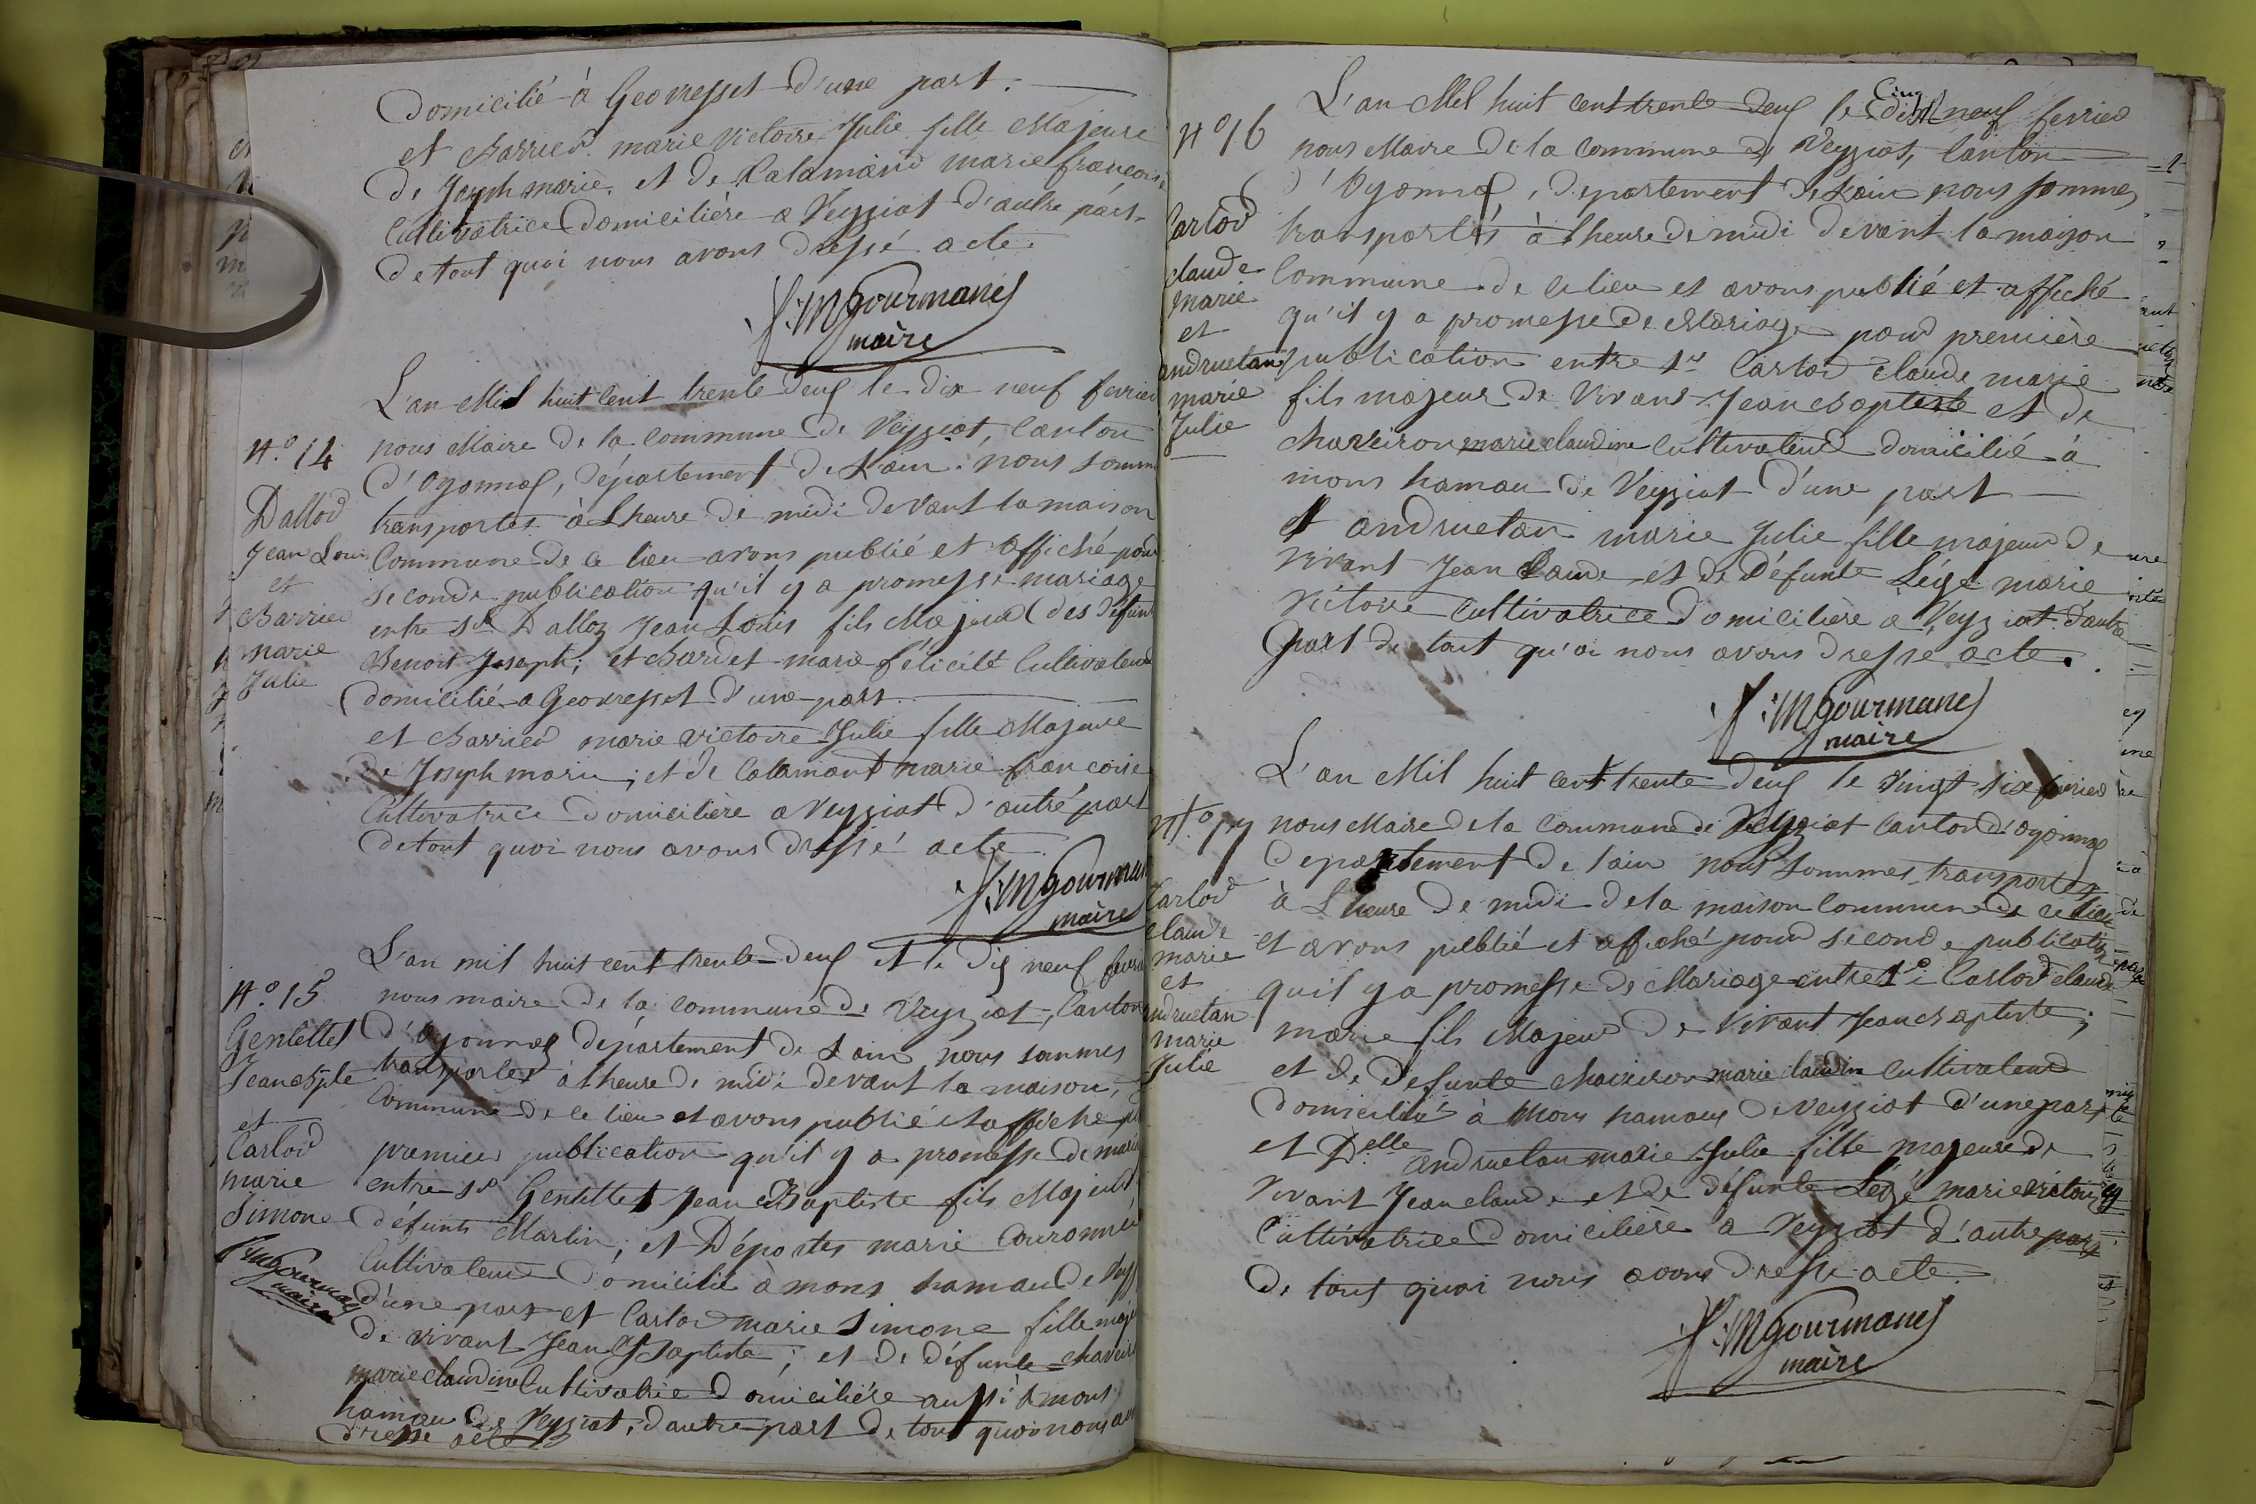 domicilié à Geovresset d'une part.
et Barrier marie victoire Julie fille Majeure
de Joseph marie, et de Calamand marie françoise
Cultivatrice domicilière a Veyziat d'autre part
de tout quoi nous avons dressé acte.
J:M gourmand
maire
L'an Mil huit Cent trente deux le dix neuf fevrier
N.º 14
nous Maire de la Commune de Veyziat, Canton
d'Oyonnax, département de L'ain. nous somm
Dallod
transportes à L'heure de midi devant la maison
Jean Louis
Commune de ce lieu avons publié et affiché pour
et
seconde publication qu'il y a promesse mariage
Barrier
entre Sr Dalloz Jean Louis fils Majeur des défunt
marie
Benoit Joseph; et Bardet marie félicité Cultivateur
Julie
domicilié a Geovresset d'une part
et Barrier marie victoire Julie fille Majeure
de Joseph marie; et de Calamant marie francoise
Cultivatrice domicilière a Veyziat d'autre part
de tout quoi nous avons dressé acte.
J:M gourman
maire
L'an mil huit cent trente-deux et le dix neuf fevri
N.º 15
nous maire de la commune de Veyziat, Canton
Gentellet
d'Oyonnax département de L'ain nous sommes
Jean Bpte
transportes à l'heure de midi devant la maison,
Commune de ce lieu et avons publié et affiché p
et
Carlod
premier publication qu'il y a promesse de mari
marie
entre Sr Gentellet Jean Baptiste fils Majeur
Simone
défunts Martin; et Déportes marie Couronnée
J:M gourmand
maire
Cultivateur domicilié à mons hamau de Veyz
d'une part et Carlod marie Simone fille maje
de vivant Jean Baptiste; et de défunte chaveir
marie claudine Cultivatrice domicilière aussi a mons
hamau de Veyziat, d'autre part de tout quoi nous av
dressé acte
L'an Mil huit Cent trente deux le Cinq dix neuf fevrier
Nº 16
nous Maire de la Commune de Veyziat, Canton
d'Oyonnax, département de L'ain nous sommes
Carlod
transportés à l'heure de midi devant la maison
claude
Commune de ce lieu et avons publié et affiché
marie
et
qu'il y a promesse de Mariage pour première
andruetan
publication entre Sr Carlod claude marie
marie
fils majeur de Vivans Jean Baptiste et de
Julie
Chaveiron marie claudine Cultivateur domicilié à
mons hamau de Veyziat d'une part
et andruetan marie Julie fille majeur de
vivant Jean Claude et de défunte Légé marie
victoire Cultivatrice domicilière a Veyziat d'autre
part de tout qu'oi nous avons dressé acte.
J:M gourmand
maire
L'an Mil huit cent trente deux le vingt six fevrier
Nº 17
nous Maire de la Commune de Veyziat Canton d'oyonnax
departement de l'ain nous sommes transportes
Carlod
à L'heure de midi de la maison Commune de ce lieu
claude
marie
et avons publié et affiché pour seconde publication
et
qu'il y a promesse de Mariage entre Sr Carlod claude
andruetan
marie
marie fils Majeur de Vivant Jean Baptiste;
Julie
et de defunte chaveiron marie claudin Cultivateur
domicilié à Mons hamau de veyziat d'une part
et Delle andruetan marie Julie fille majeure de
vivant Jean claude et de défunte Légé marie victoire
Cultivatrice domicilière a Veyziat d'autre part
de tout quoi nous avons dressé acte.
J:M gourmand
maire